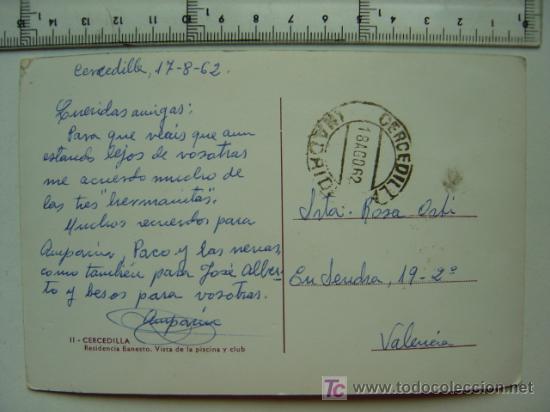 Cercedilla, 17-8-62.
Queridas amigas:
Para que veais que aun
estando lejos de vosotras
me acuerdo mucho de
las tres "hermanitas".
Muchos recuerdos para
Amparín, Paco y las nenas,
como también para José Alber-
to y besos para vosotras.
Amparín
11 - CERCEDILLA
Residencia Banesto. Vista de la piscina y club
CERCEDILLA
18 AGO 62
(MADRID)
Srta. Rosa
19-2º
Valencia
todocoleccion
www.todocoleccion.net